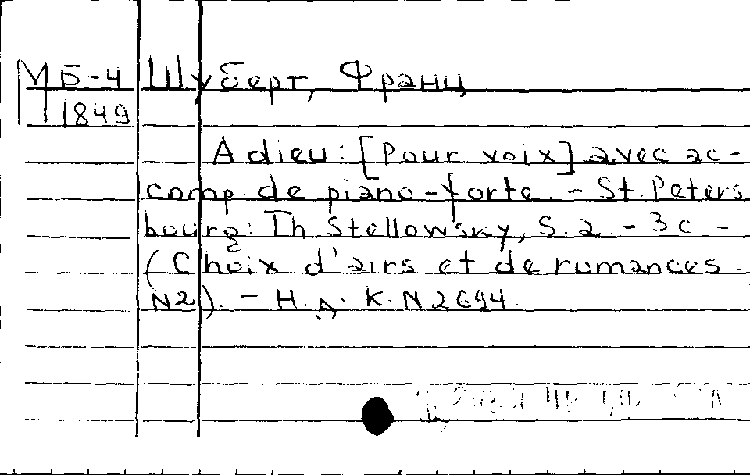 МБ-4 Шуберт, Франц
1849
Adieu: [Pour voix] avec ac-
comp de piano-forte. - St. Peters
bourg: Th Stellowsky, S. a. - 3 c -
(Choix d'airs et de romances
N2). - Н. Д. К. N 2694